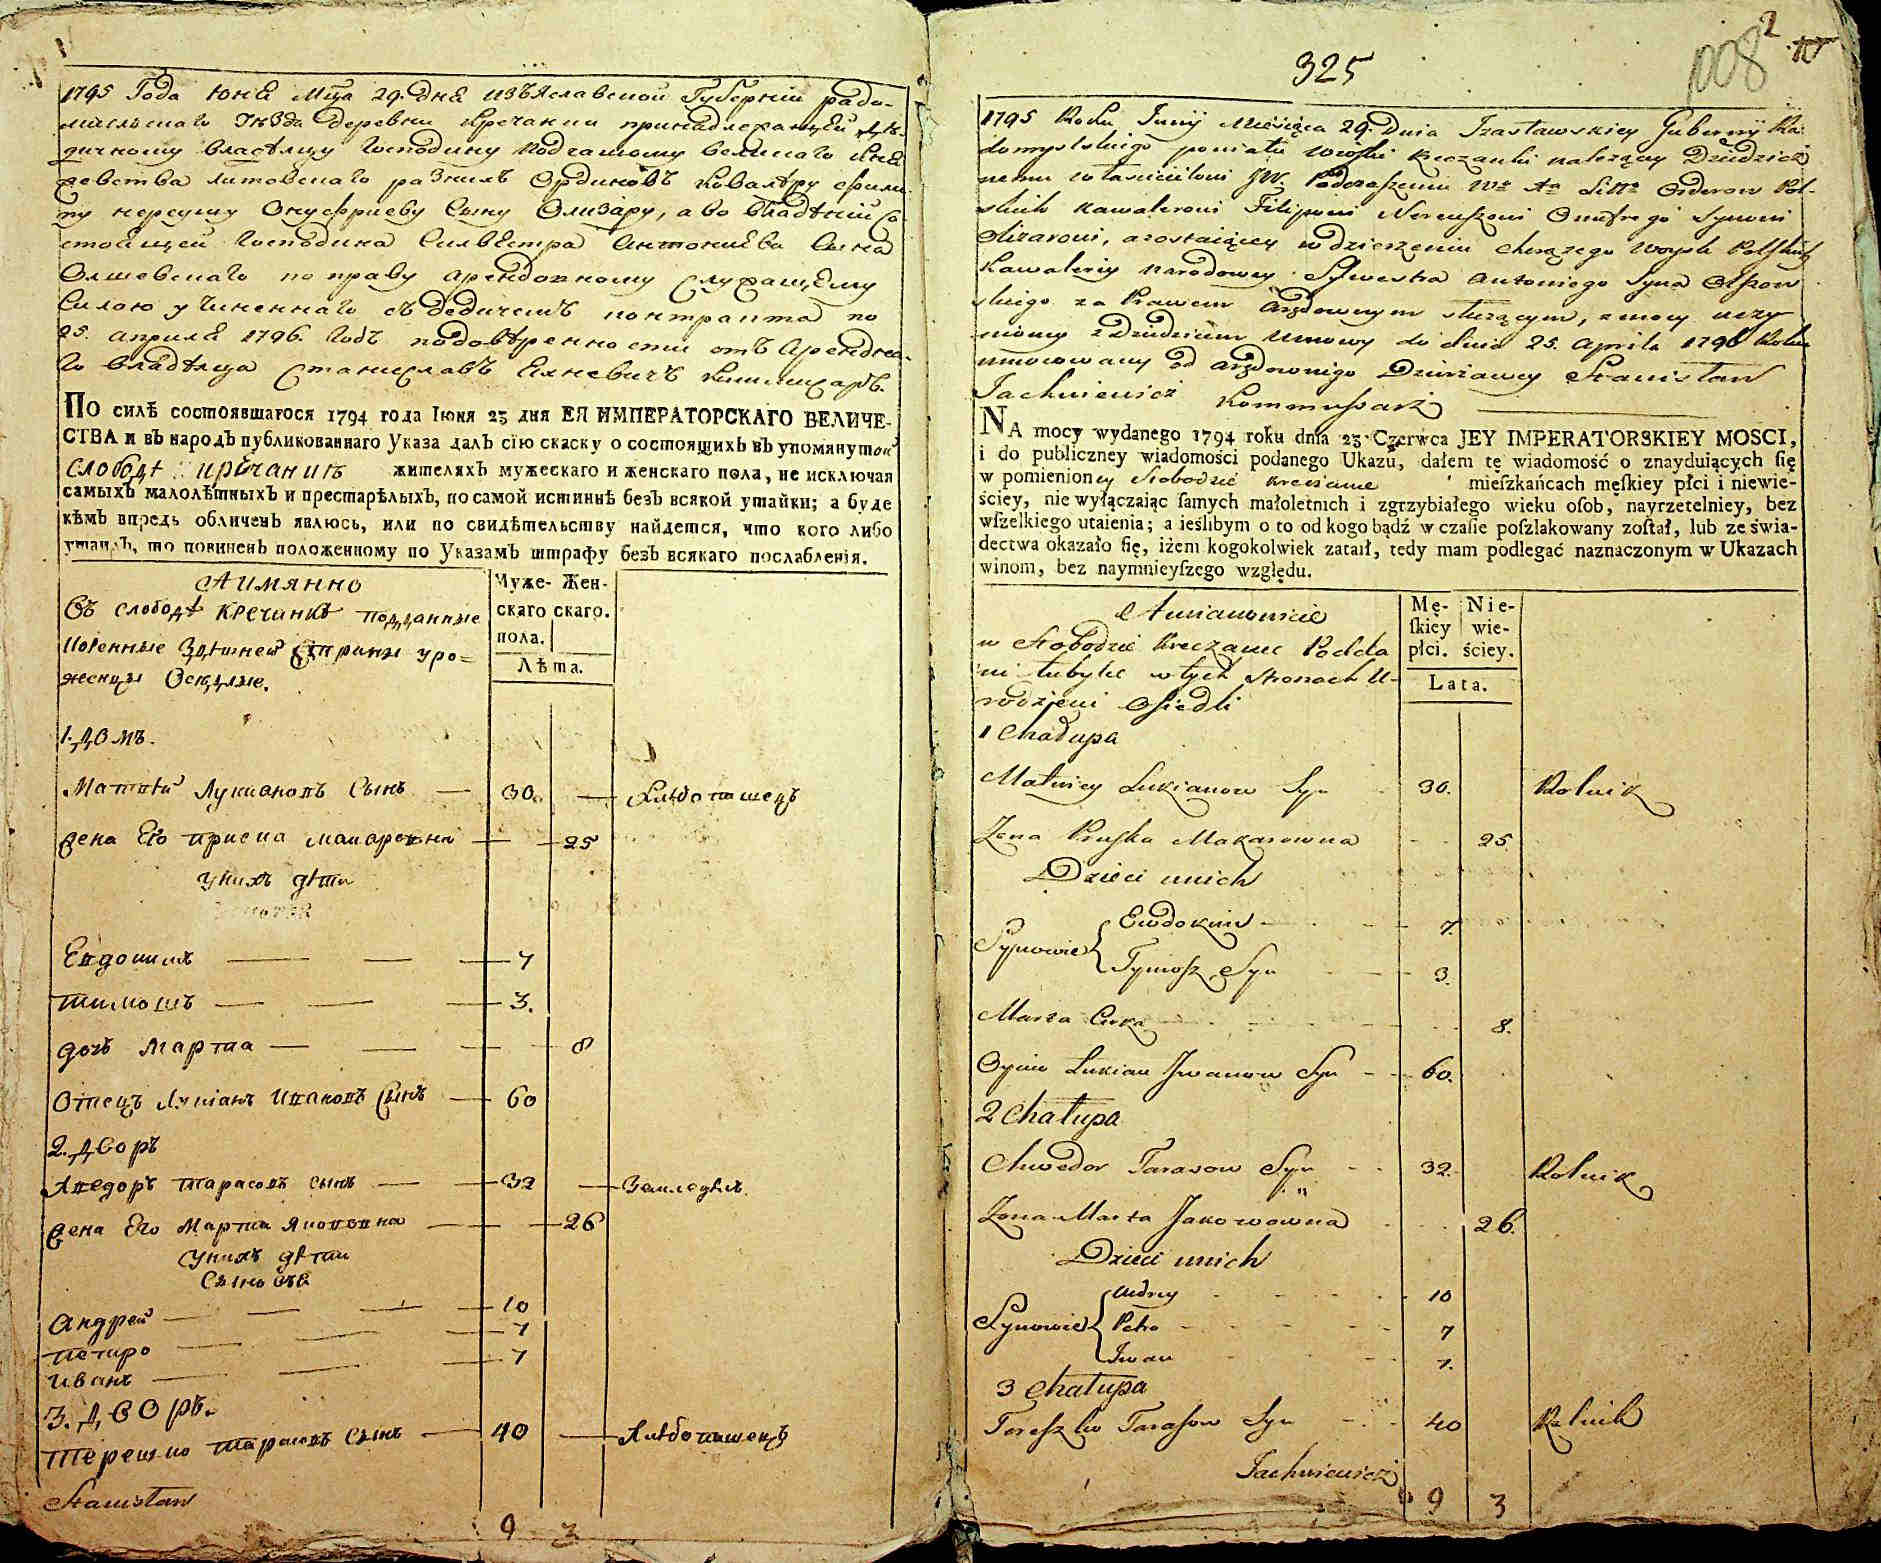 1795 Года Юня Мца 29. дня Изъяславской Губерніи радо-
мисльского Уезда деревни Кречанки принадлежащей дѣ-
дичному владѣлцу Господину Подчашому великого Кня
жевства литовского разнихъ Ординовъ Ковалѣру Филипу
нереушу Онуфриеву Сыну Олизару, а во владѣніи со
стоящей Господина Силвестра Антониева Сына
Олшевского по праву арендовному служащему
Силою учиненнаго съ дедичемъ контракта по
25. априля 1796. Годъ подовѣренности отъ Арендна-
го владѣлца Станиславъ Комисаръ.
По силѣ состоявшагося 1794 года Іюня 23 дня ЕЯ ИМПЕРАТОРСКАГО ВЕЛИЧЕ-
СТВА и въ народъ публикованнаго Указа далъ сію скаску о состоящихъ въ упомянутой
слободѣ кречанкѣ жителяхъ мужескаго и женскаго пола, не исключая
самыхъ малолѣтныхъ и престарѣлыхъ, по самой истиннѣ безъ всякой утайки; а буде
кѣмъ впредь обличенъ явлюсь, или по свидѣтельству найдется, что кого либо
утаилъ, то повиненъ положенному по Указамъ штрафу безъ всякаго послабленія.
Аимянно
Въ слободѣ Кречанкѣ подданные
коренные здѣшней Страны уро-
женцы Оседлые.
Муже- Жен-
скаго скаго.
пола.
Лѣта.
1. домъ.
Матвѣй Лукиановъ Сынъ 30. Хлѣбопашецъ
жена Его приска макаровна 25
уних дѣти
Евдокимъ 7
тимошъ 3.
дочь Марта 8
Отецъ Лукіанъ Ивановъ Сынъ 60
2. дворъ
Хведоръ тарасовъ сынъ 32 Земледѣлъ.
жена Его Марта Якововна 26
Уних дѣти
Сыновья
Андрей 10
петро 7
иванъ 1
3. дворъ.
терешко тарасовъ сынъ 40 Хлѣбопашецъ
Stanisław
9 3
325
1008
2
1795 Roku Junij Miesiąca 29. Dnia Izasławskiey Gubernij Ra-
domyslskiego powiatu wioski Kreczanki należący Dziedzicz
nemu włascicielowi JW. Podczaszemu Wo Xa Litto Orderow Pol-
skich Kawalerowi Filipowi Nereuszowi Onufrego Synowi
Olizarowi, a zostaiącey w dzierżeniu chorążego woysk Polskich
Kawaleriy Narodowey Sylwestra Antoniego Syna Olszew
skiego za Prawem Arędownym służącym, z mocy uczy
nioney z Dziedzicem Umowy do dnia 25. Aprila 1796 Roku
umocowany od Arędownego Dzierżawcy Stanisław
Jachniewicz Kommissarz
NA mocy wydanego 1794 roku dnia 23 Czerwca JEY IMPERATORSKIEY MOSCI,
i do publiczney wiadomości podanego Ukazu, dałem tę wiadomość o znayduiących się
w pomienioney Słobodzie Kreczance mieszkańcach męskiey płci i niewie-
ściey, nie wyłączaiąc samych małoletnich i zgrzybiałego wieku osob, nayrzetelniey, bez
wszelkiego utaienia; a ieślibym o to od kogo bądź w czasie poszlakowany został, lub ze świa-
dectwa okazało się, iżem kogokolwiek zataił, tedy mam podlegać naznaczonym w Ukazach
winom, bez naymnieyszego względu.
A mianowicie
w Słobodzie Kreczance Podda
ni tubylce w tych stronach U-
rodzieni Osiedli
Mę- Nie-
skiey wie-
płci. ściey.
Lata.
1 Chałupa
Matwiey Lukianow Syn 30. Rolnik
Zona Pryska Makarowna 25
Dzieci unich
Synowie
Ewdokim 7.
Tymosz Syn 3.
Marta Curka 8.
Oyciec Lukian Jwanow Syn 60.
2 Chałupa
Chwedor Tarasow Syn 32 Rolnik
Zona Marta Jakowowna 26.
Dzieci unich
Synowie
Andrey 10
Petro 7
Jwan 1.
3 Chałupa
Tereszko Tarasow Syn 40 Rolnik
Jachniewicz
9 3